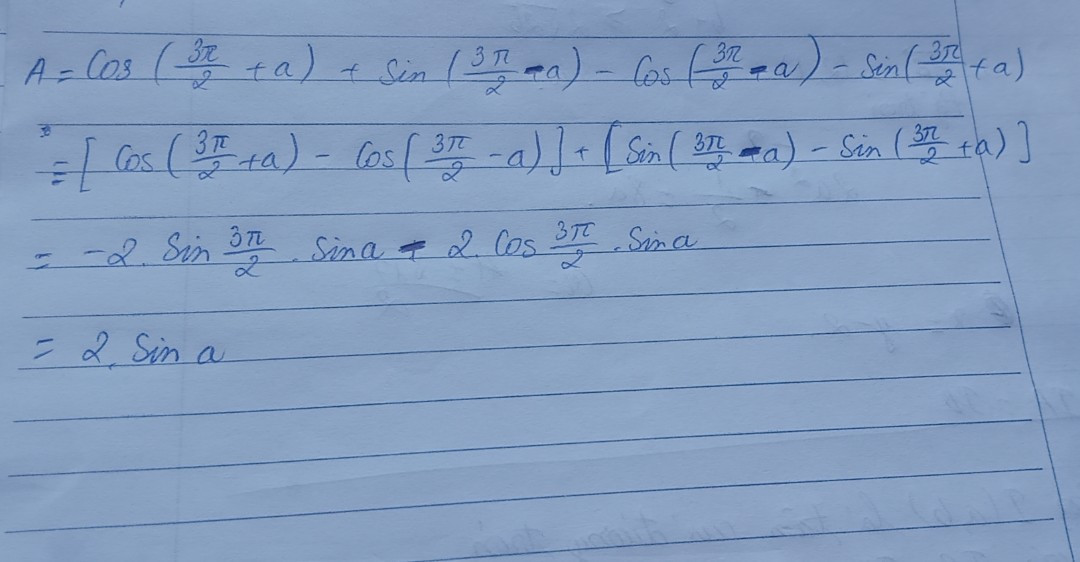 A = Cos (3π/2 + a) + Sin (3π/2 - a) - Cos (3π/2 - a) - Sin (3π/2 + a)
= [ Cos (3π/2 + a) - Cos (3π/2 - a) ] + [ Sin (3π/2 - a) - Sin (3π/2 + a) ]
= -2. Sin 3π/2 . Sin a - 2. Cos 3π/2 . Sin a
= 2. Sin a